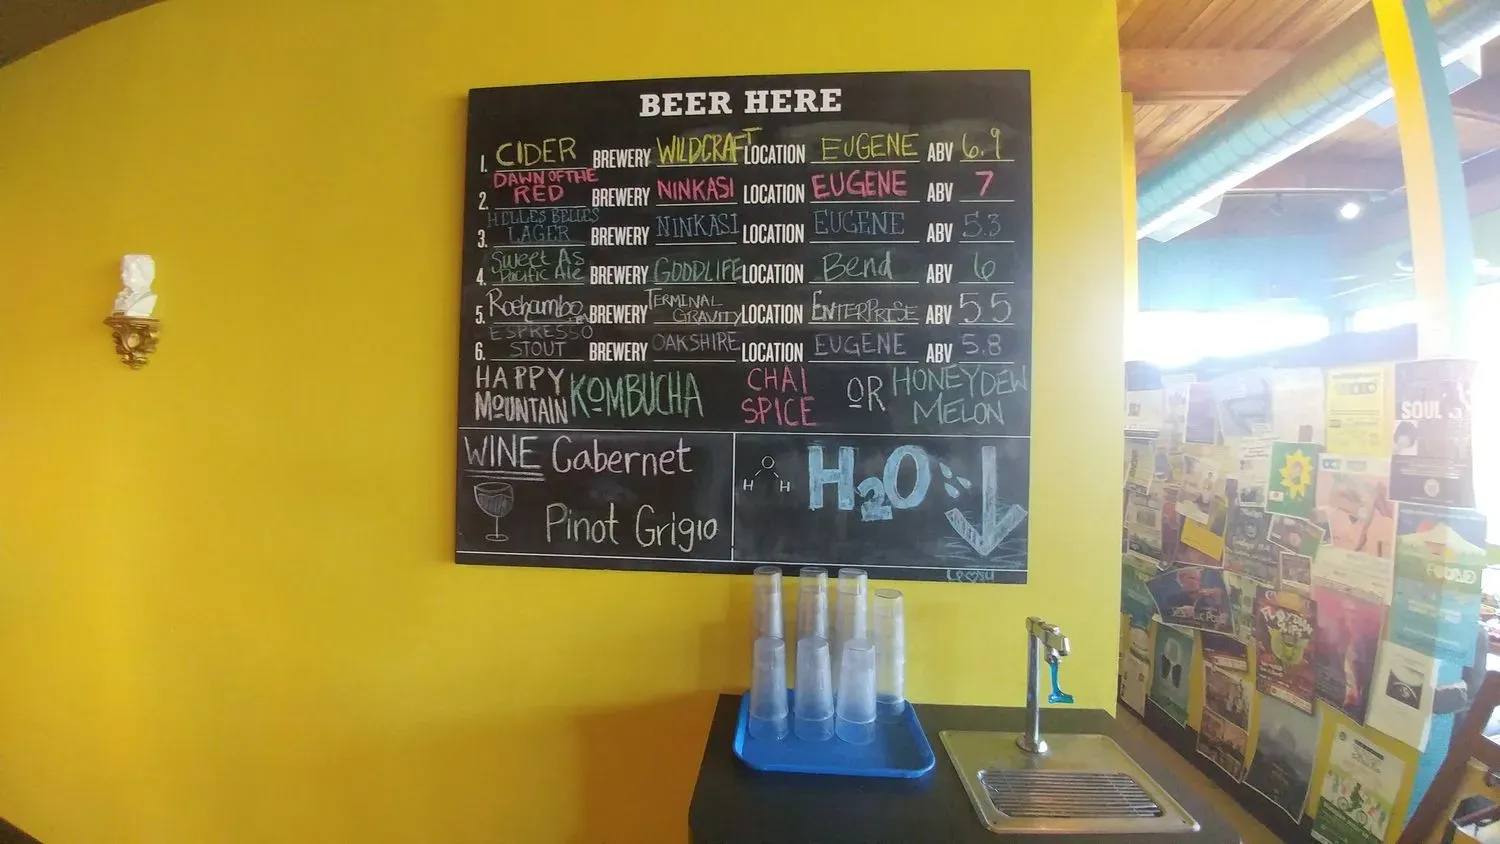 BEER HERE
1. CIDER BREWERY WILDCRAFT LOCATION EUGENE ABV 6.9
2. DAWN OF THE RED BREWERY NINKASI LOCATION EUGENE ABV 7
3. HELLES BELLES LAGER BREWERY NINKASI LOCATION EUGENE ABV 5.3
4. Sweet As Pacific Ale BREWERY GOODLIFE LOCATION Bend ABV 6
5. Rochambo BREWERY TERMINAL GRAVITY LOCATION ENTERPRISE ABV 5.5
6. ESPRESSO STOUT BREWERY OAKSHIRE LOCATION EUGENE ABV 5.8
HAPPY MOUNTAIN KOMBUCHA CHAI SPICE OR HONEYDEW MELON
WINE Cabernet
Pinot Grigio
H O H
H2O
SOUL